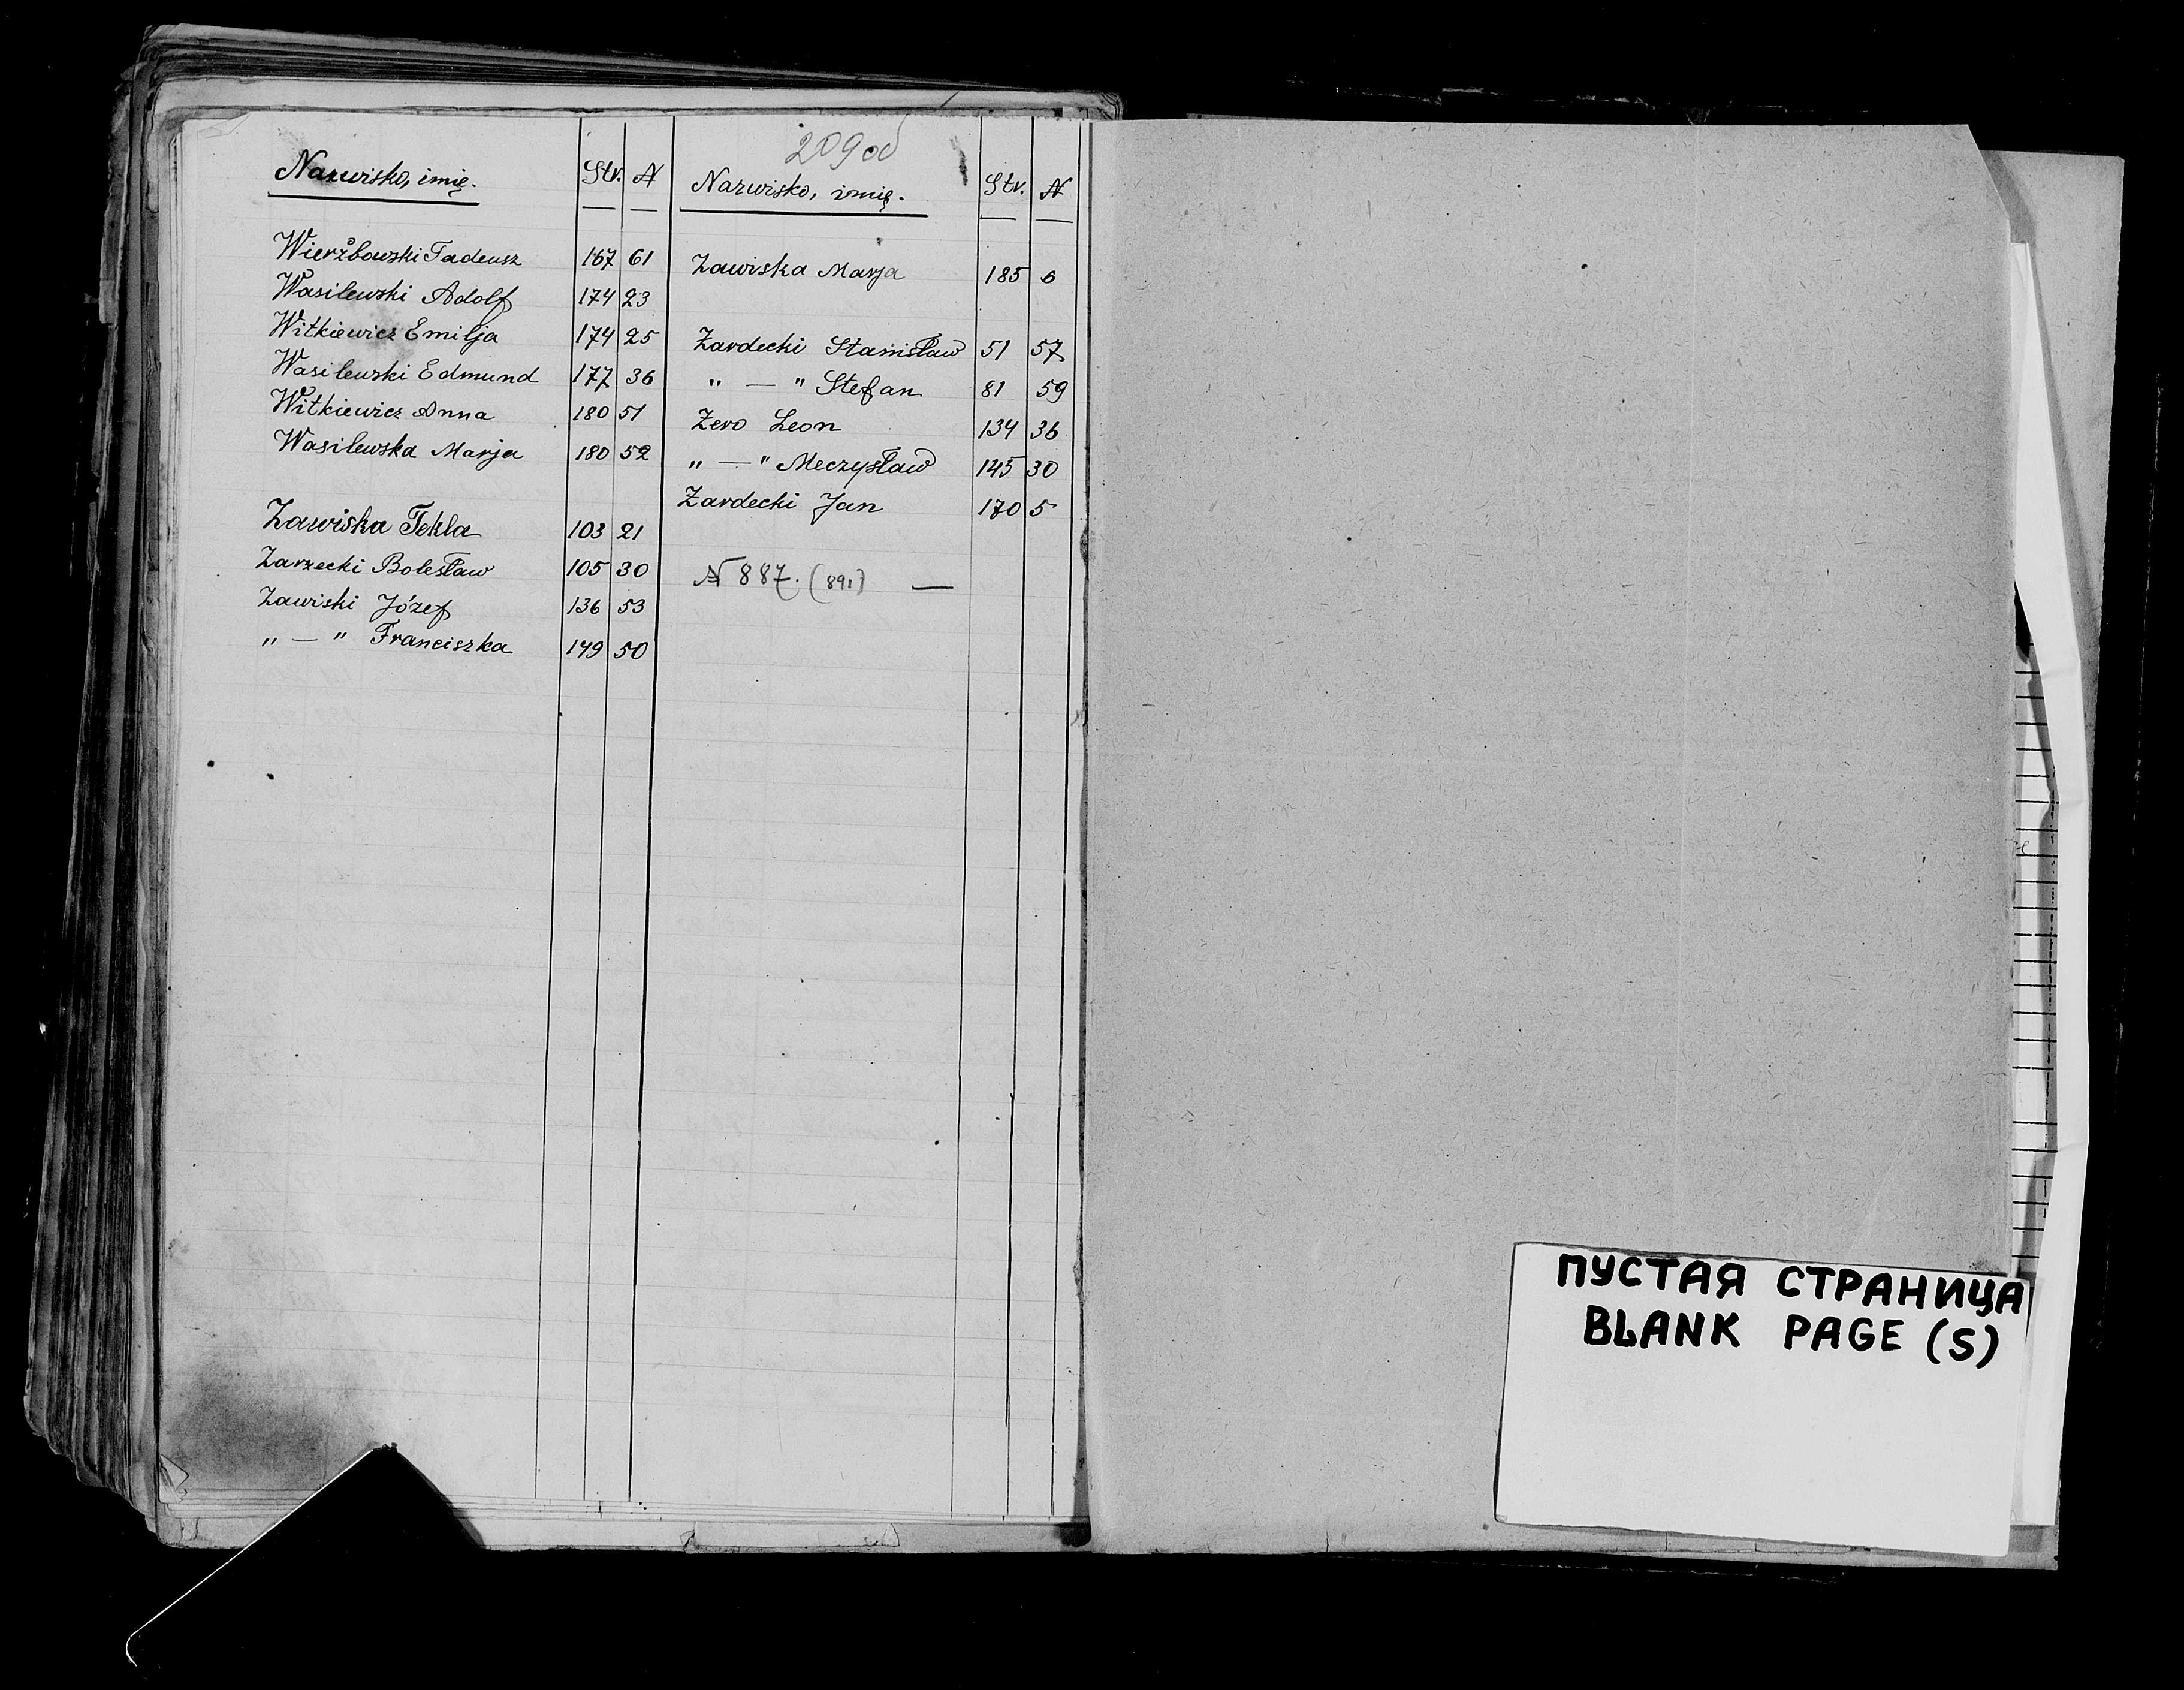 209 об
Nazwisko, imię. Str. N
Wierzbowski Tadeusz 167 61
Wasilewski Adolf 174 23
Witkiewicz Emilja 174 25
Wasilewski Edmund 177 36
Witkiewicz Anna 180 51
Wasilewska Marja 180 52
Zawiska Tekla 103 21
Zarzecki Bolesław 105 30
Zawiski Józef 136 53
„ — " Franciszka 149 50
Nazwisko, imię. Str. N
Zawiska Marja 185 6
Żardecki Stanisław 51 57
" — " Stefan 81 59
Żero Leon 134 36
„ — " Meczysław 145 30
Żardecki Jan 170 5
N 887. (891) —
ПУСТАЯ СТРАНИЦА
BLANK PAGE (S)